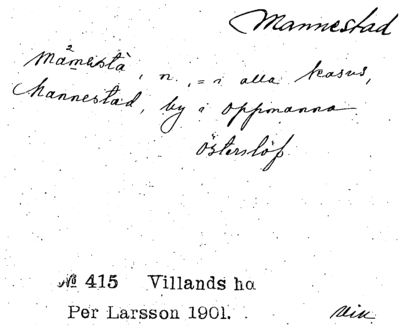 Mannestad
, n. = i alla kasus,
Mannestad, by i Oppmanna
Österslöf.
№ 415 Villands hd
Per Larsson 1901.